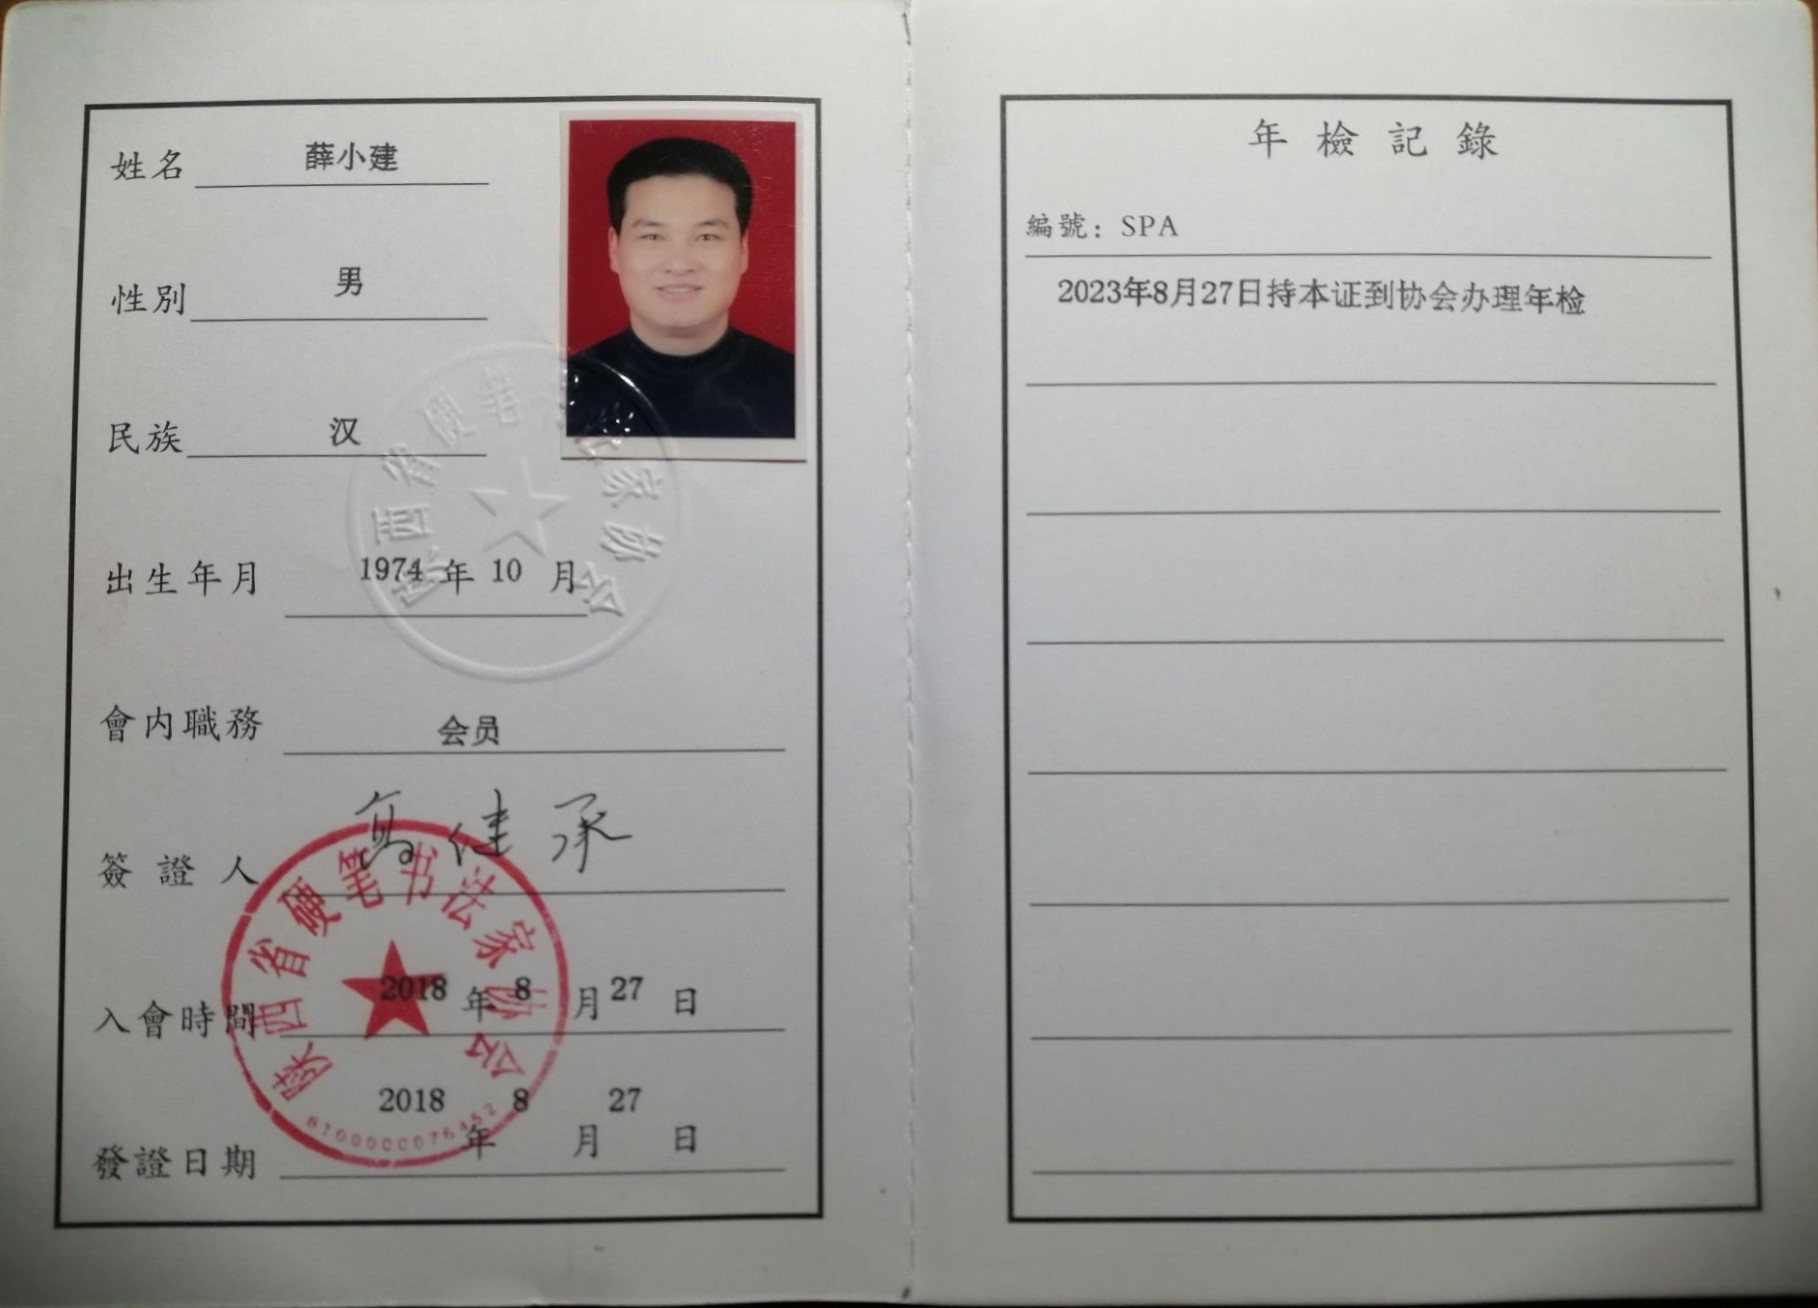 姓名 薛小建
性別 男
民族 汉
出生年月 1974 年 10 月
會内職務 会员
簽證人 高健承
入會時間 2018 年 8 月 27 日
發證日期 2018 年 8 月 27 日
陕西省硬笔书法家协会
陕西省硬笔书法家协会
6100000076452
年檢記錄
編號：SPA
2023年8月27日持本证到协会办理年检